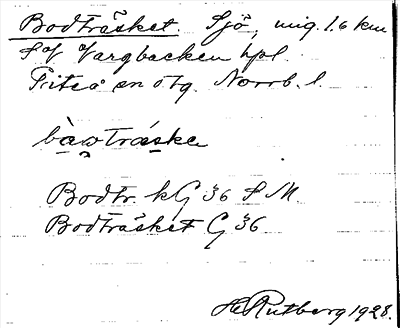 Bodträsket Sjö, mig. 1.6 km
S of Vargbacken hpl.
Piteå sn o tg. Norrb. l.
bàωträske
Bodtr. kG 36 S M.
Bodträsket G 36.
H Rutberg 1928.